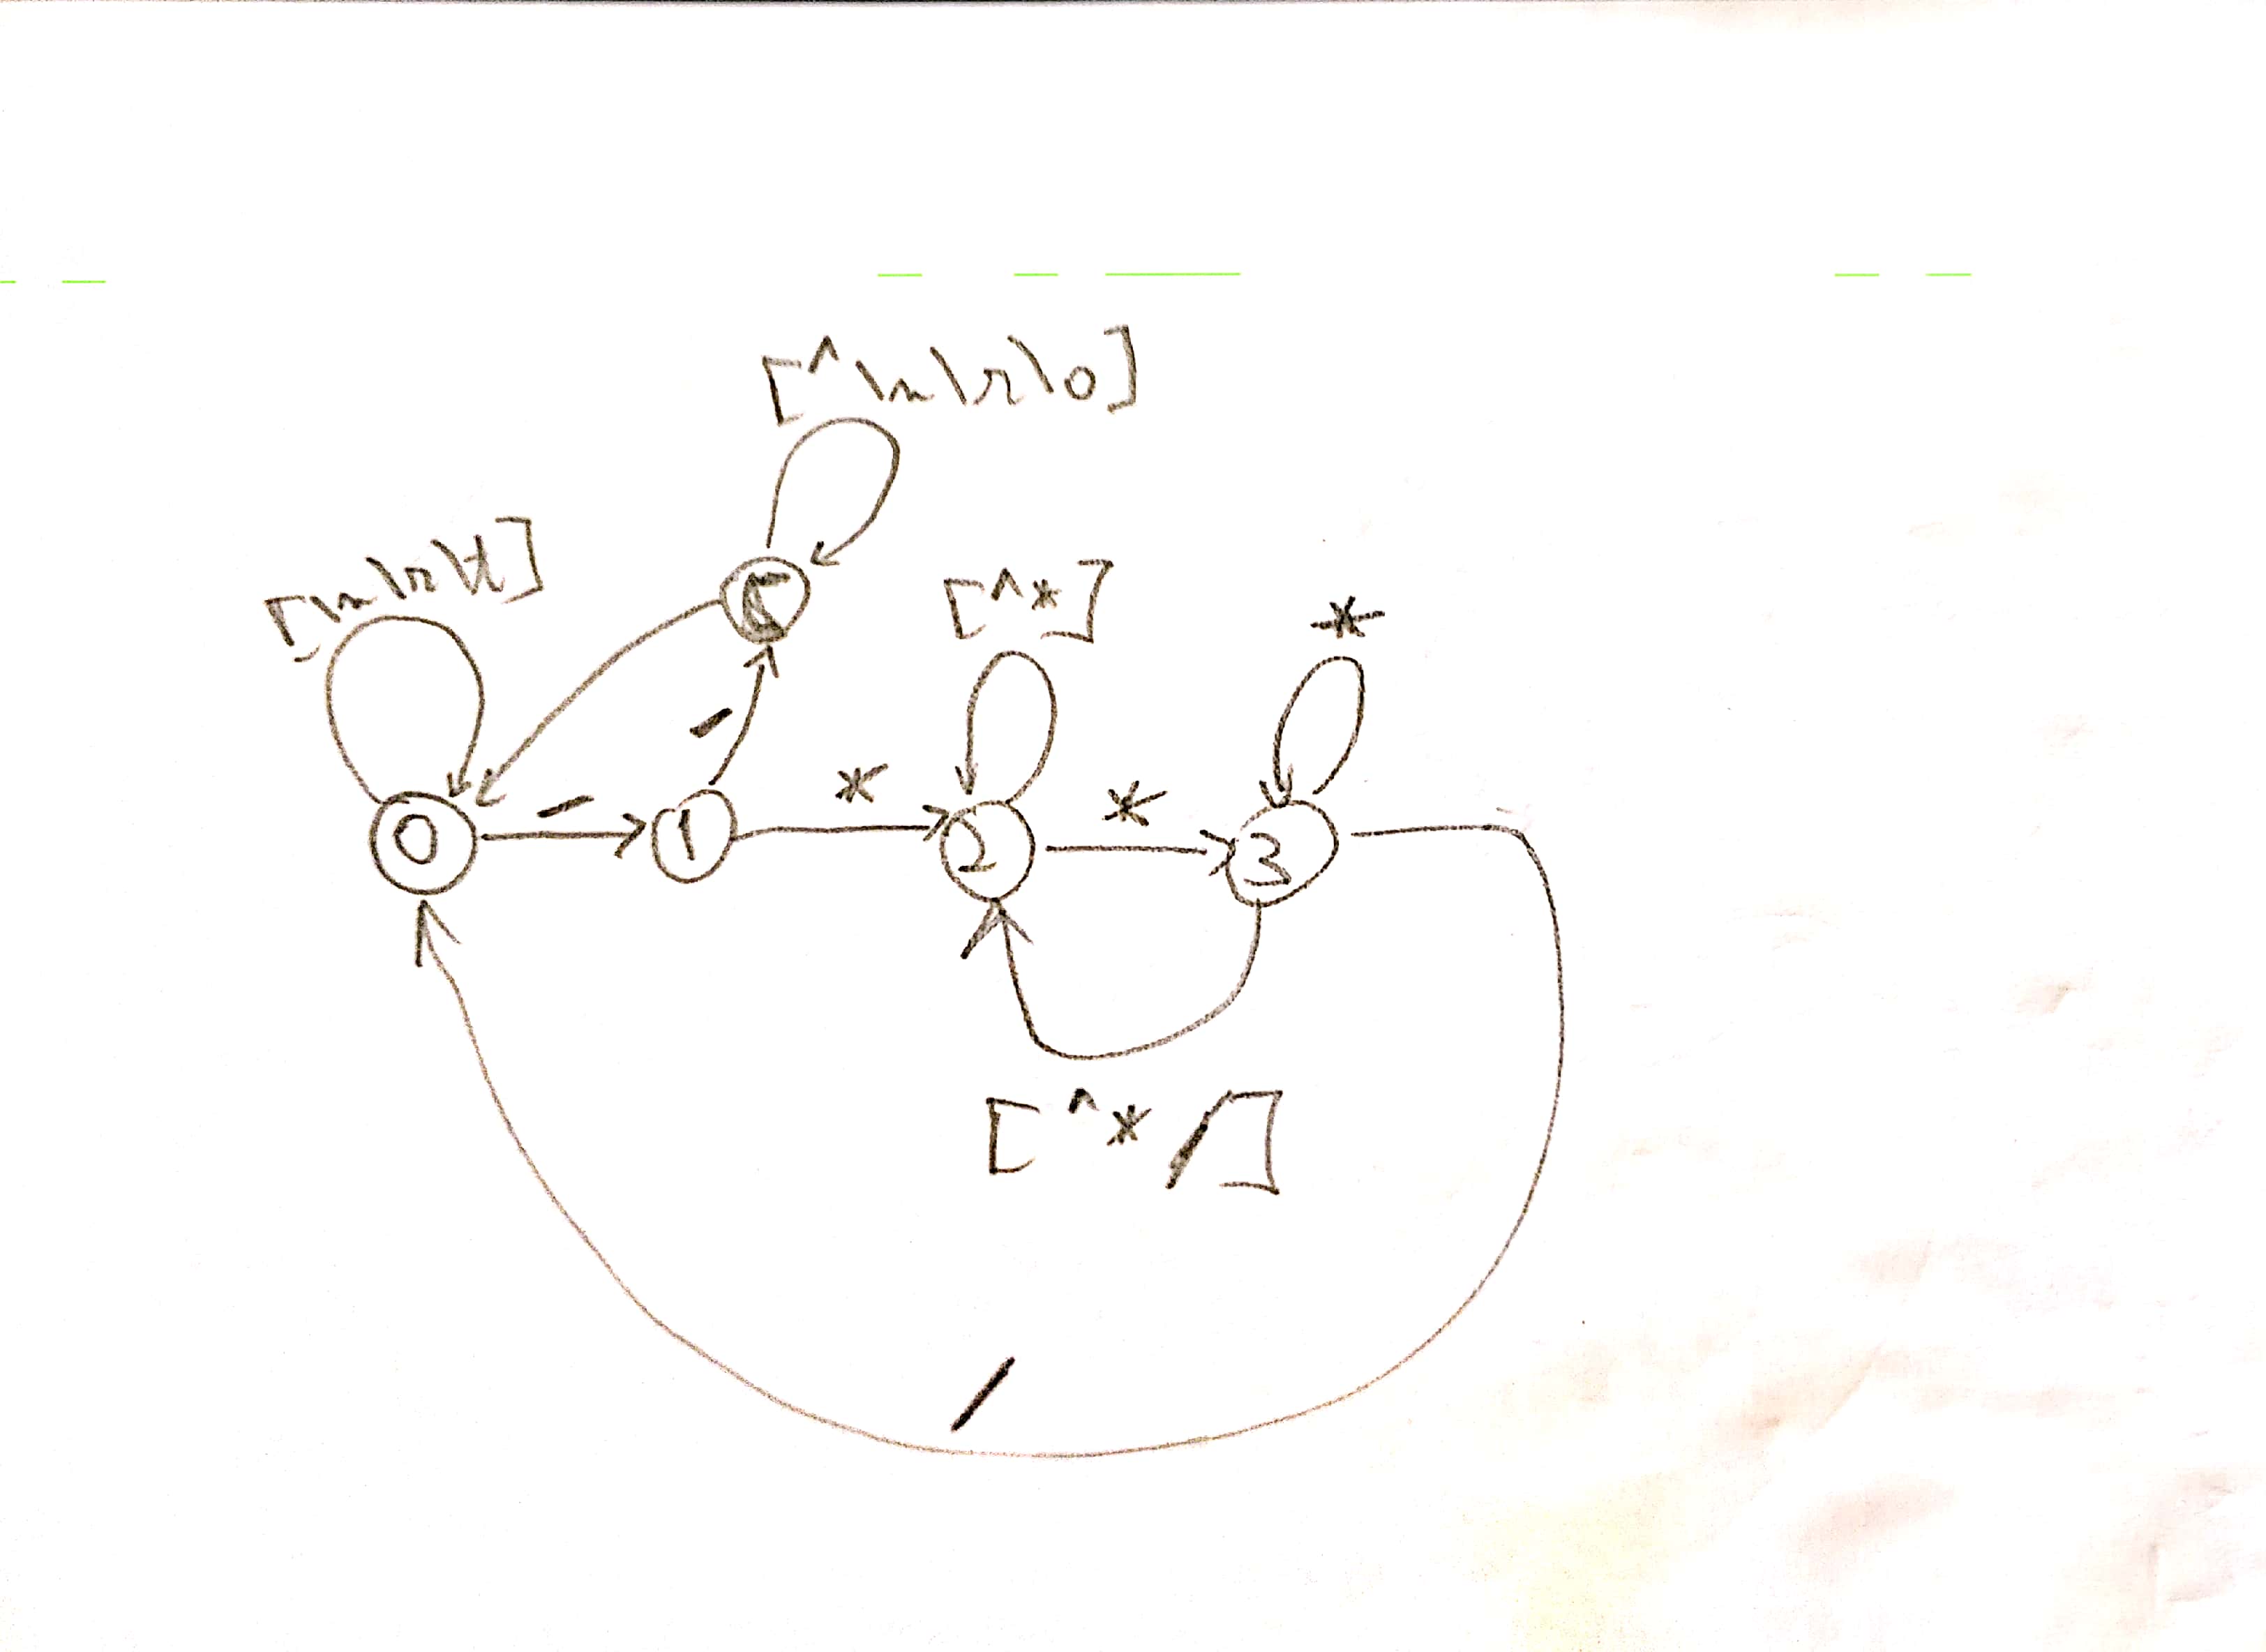 [^\n\r\0]
[\n\r\t]
[^*]
*
-
*
*
-
0
1
2
3
[^*/]
/